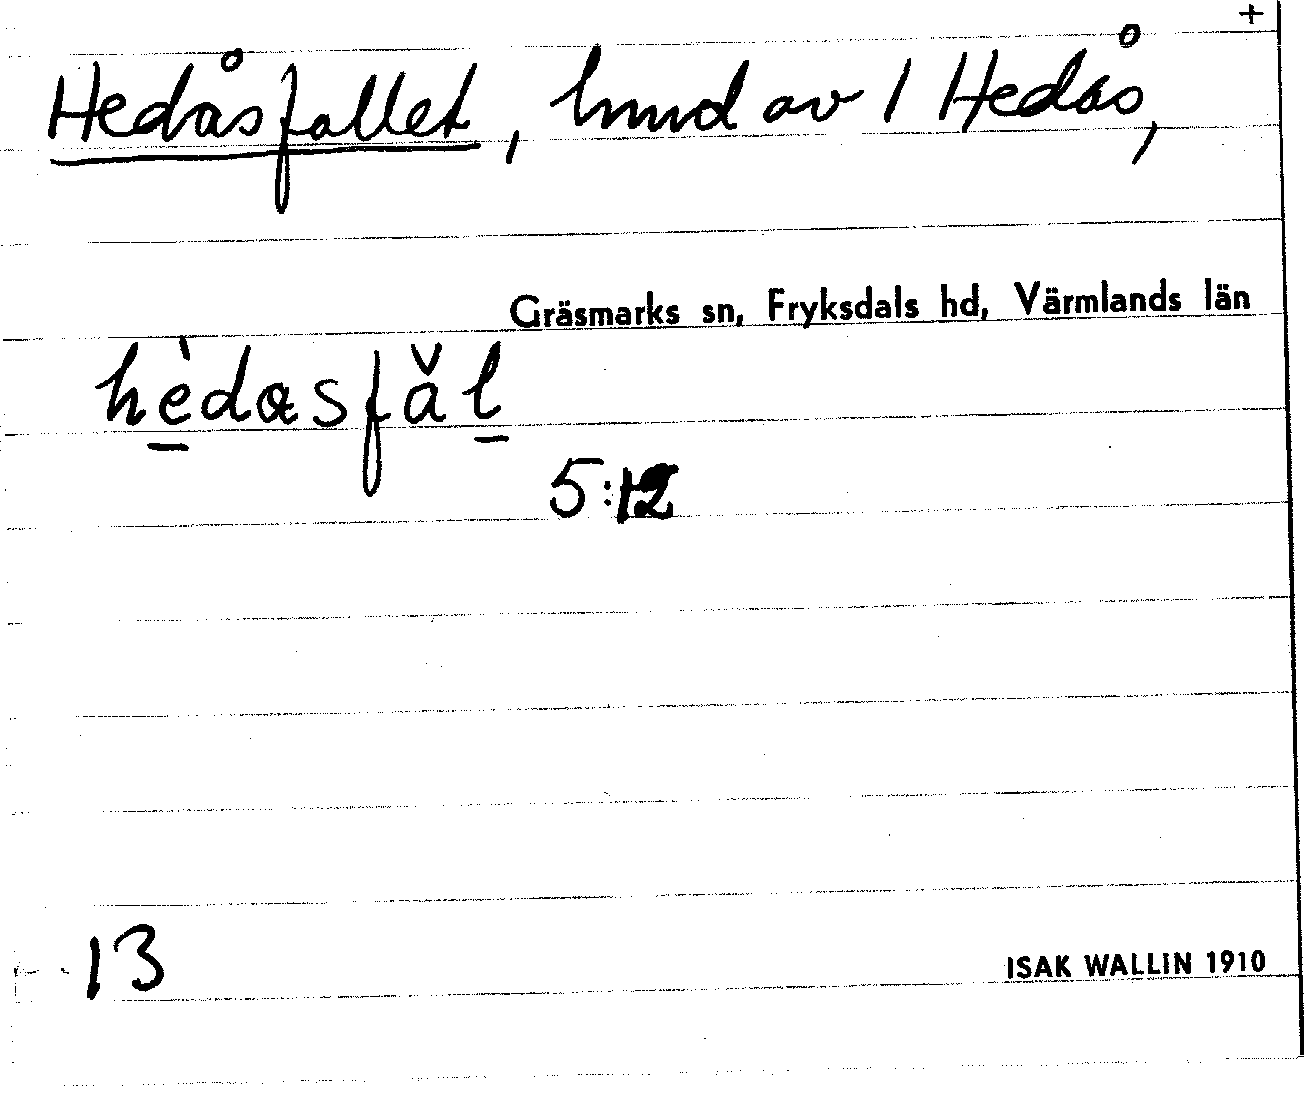 +
Hedåsfallet, hmd av 1 Hedås,
Gräsmarks sn, Fryksdals hd, Värmlands län
hèdasfăl
5:12
13
ISAK WALLIN 1910